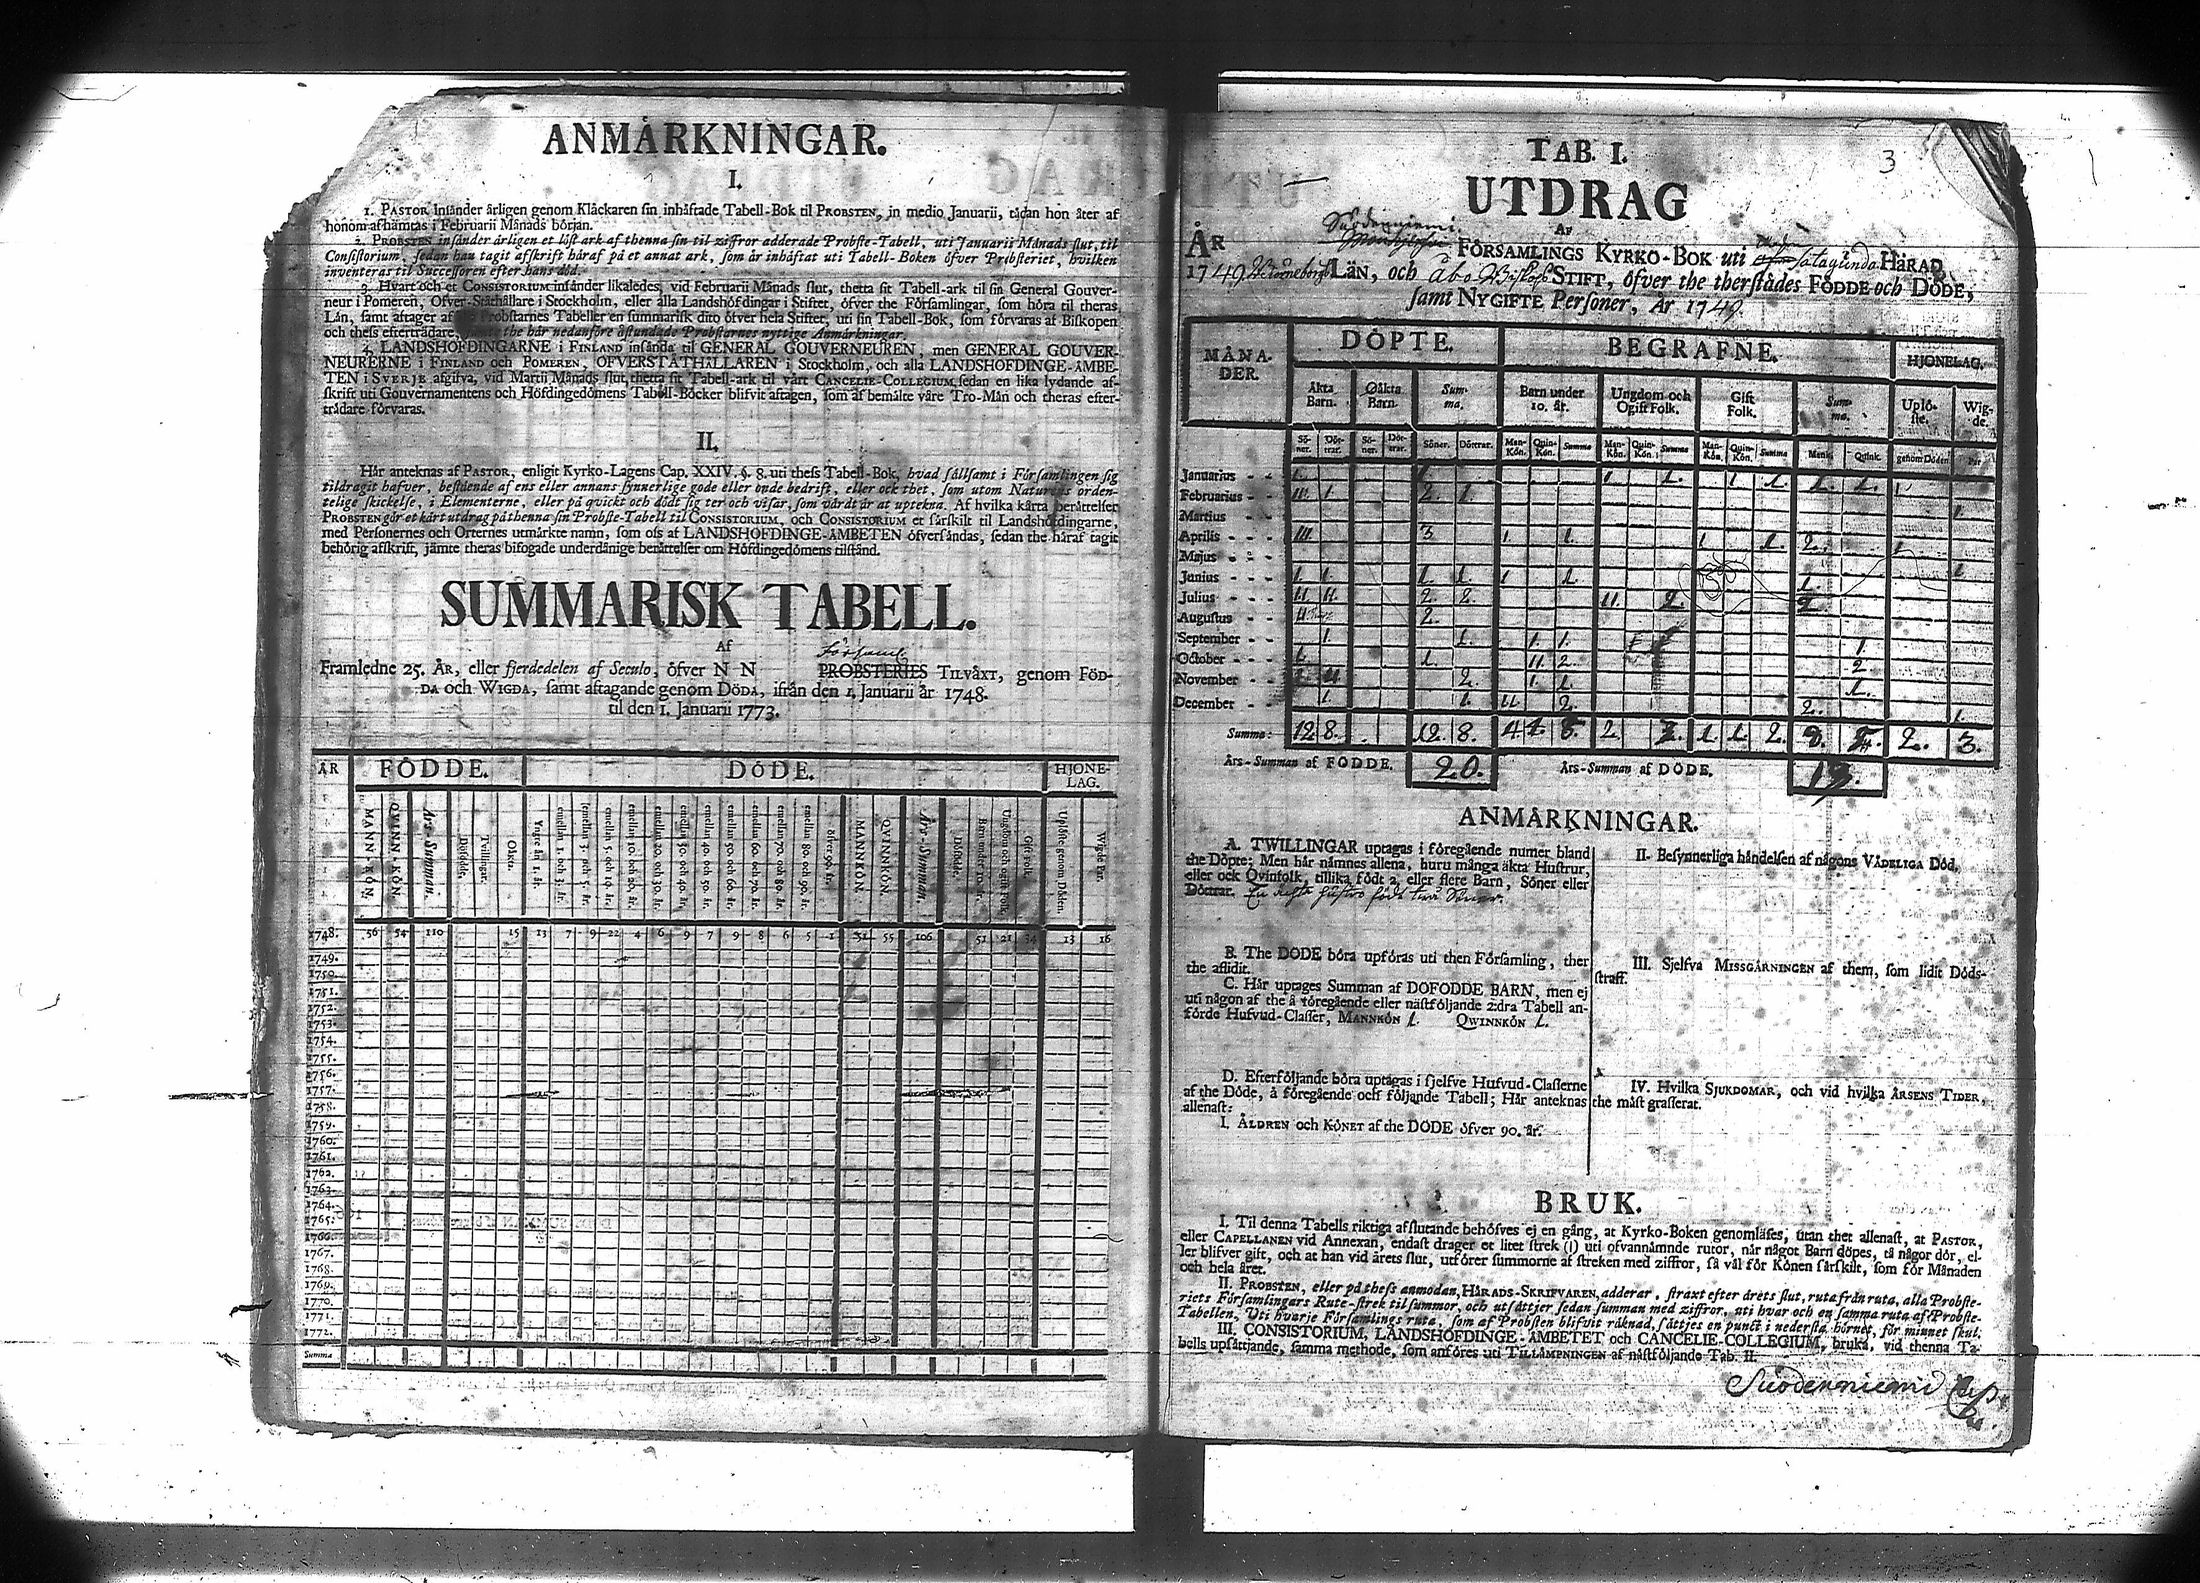 ANMÅRKNINGAR.
I.
1. PASTOR insånder årligen genom Klåckaren sin inhåftade Tabell-Bok til PROBSTEN, in medio Januarii, tådan hon åter af
honom afhåmtas i Februarii Månads början.
2. PROBSTEN insånder årligen et löst ark af thenna sin til ziffror adderade Probste-Tabell, uti Januarii Månads slut, til
Consistorium, sedan han tagit afskrift håraf på et annat ark, som år inhåftat uti Tabell-Boken öfver Probsteriet, hvilken
inventeras til Successoren efter hans död.
3. Hvart och et CONSISTORIUM insånder likaledes, vid Februarii Månads slut, thetta sit Tabell-ark til sin General Gouver-
neur i Pomeren, Öfver-Ståthållare i Stockholm, eller alla Landshöfdingar i Stiftet, öfver the Församlingar, som höra til theras
Lån, samt aftager af Probstarnes Tabeller en summarisk dito öfver hela Stiftet, uti sin Tabell-Bok, som förvaras af Biskopen
och thess eftertrådare, jämte the hår nedanföre åstundade Probstarnes nyttige Anmårkningar.
4. LANDSHÖFDINGARNE i FINLAND insånda til GENERAL GOUVERNEUREN, men GENERAL GOUVER-
NEURERNE i FINLAND och POMEREN, ÖFVERSTÅTHÅLLAREN i Stockholm, och alla LANDSHÖFDINGE-ÅMBE-
TEN i SVERJE afgifva, vid Martii Månads slut, thetta sit Tabell-ark til vårt CANCELIE-COLLEGIUM, sedan en lika lydande af-
skrift uti Gouvernamentens och Höfdingedömens Tabell-Böcker blifvit aftagen, som af bemålte våre Tro-Mån och theras efter-
trådare förvaras.
II.
Hår anteknas af PASTOR, enligit Kyrko-Lagens Cap. XXIV. §. 8. uti thess Tabell-Bok, hvad sållsamt i Församlingen sig
tildragit hafver, bestående af ens eller annans synnerlige gode eller onde bedrift, eller ock thet, som utom Naturens orden-
telige skickelse, i Elementerne, eller på qvickt och dödt sig ter och visar, som vårdt år at uptekna. Af hvilka kårta beråttelser
PROBSTEN gör et kårt utdrag på thenna sin Probste-Tabell til CONSISTORIUM, och CONSISTORIUM et sårskilt til Landshöfdingarne,
med Personernes och Orternes utmårkte namn, som oss af LANDSHÖFDINGE-ÅMBETEN öfversåndas, sedan the håraf tagit
behörig afskrift, jämte theras bifogade underdånige beråttelser om Höfdingedömens tilstånd.
SUMMARISK TABELL.
Af
Församl
Framledne 25. ÅR, eller fjerdedelen af Seculo, öfver N N PROBSTERIES TILVÅXT, genom FÖD-
DA och WIGDA, samt aftagande genom DÖDA, ifrån den 1. Januarii år 1748.
til den 1. Januarii 1773.
ÅR FÖDDE. DÖDE. HJONE-
LAG.
MANNKÖN. QVINNKÖN. Års-Summan. Dödfödde. Tvillingar. Oäkta. Yngre än 1. år. emellan 1. och 3. år. emellan 3. och 5. år. emellan 5. och 10. år. emellan 10. och 20. år. emellan 20. och 30. år. emellan 30. och 40. år. emellan 40. och 50. år. emellan 50. och 60. år. emellan 60. och 70. år. emellan 70. och 80. år. emellan 80. och 90. år. öfver 90. år. MANNKÖN. QVINNKÖN. Års-Summan. Barn under 10. år. Ungdom och ogift Folk. Gift Folk. Uplöste genom Döden. Wigde Par.
1748. 56 54 110 15 13 7 9 22 4 6 9 7 9 8 6 5 1 51 55 106 51 21 34 13 16
1749.
1750.
1751.
1752.
1753.
1754.
1755.
1756.
1757.
1758.
1759.
1760.
1761.
1762.
1763.
1764.
1765.
1766.
1767.
1768.
1769.
1770.
1771.
1772.
Summa
3
TAB. I.
UTDRAG
AF
Suoderniemi
ÅR FÖRSAMLINGS KYRKO-BOK uti Satagunda HÄRAD,
1749. Biörneborgs LÄN, och Åbo Biskops STIFT, öfver the therstådes FÖDDE och DÖDE,
samt NYGIFTE Personer, År 1749.
MÅNA-
DER. DÖPTE. BEGRAFNE. HJONELAG.
Åkta
Barn. Oåkta
Barn. Sum-
ma. Barn under
10. år. Ungdom och
Ogift Folk. Gift
Folk. Sum-
ma. Uplö-
ste. Wig-
de.
Sö-
ner. Döt-
trar. Sö-
ner. Döt-
trar. Söner. Döttrar. Man-
Kön. Quin-
Kön. Summa Man-
Kön. Quin-
Kön. Summa Man-
Kön. Quin-
Kön. Summa Mank. Quink. genom Döden Par
Januarius - - 1. 1. 1. 1. 1. 1. 1. 1. 1
Februarius - - 111. 1. 2. 1.
Martius - - 1.
Aprilis - - 111. 3. 1. 1. 1. 1. 2. 1.
Majus - - 1.
Junius - - 1. 1. 1. 1. 1 1. 1.
Julius - - 11. 11. 2. 2. 11. 2. 2.
Augustus - - 11. 2.
September - - 1. 1. 1. 1. 1.
October - - 1. 1. 11. 2. 2.
November - - 11. 2. 1. 1. 1.
December - - 1. 1. 11. 2. 2. 1.
Summa: 12. 8. 12. 8. 4 4. 8. 2. 1. 1. 2. 2. 3.
Års-Summan af FÖDDE. 20. Års-Summan af DÖDE.
ANMÅRKNINGAR.
A. TWILLINGAR uptagas i föregående numer bland
the Döpte; Men hår nåmnes allena, huru många åkta Hustrur,
eller ock Qvinfolk, tillika födt 2. eller flere Barn, Söner eller
Döttrar. En ächta hustro födt två Söner.
B. The DÖDE böra upföras uti then Församling, ther
the aflidit.
C. Hår uptages Summan af DÖFÖDDE BARN, men ej
uti någon af the å föregående eller nästföljande 2:dra Tabell an-
förde Hufvud-Classer, MANNKÖN 1. QWINNKÖN 1.
D. Efterföljande böra uptagas i sjelfve Hufvud-Classerne
af the Döde, å föregående och följande Tabell; Hår anteknas
allenast:
I. ÅLDREN och KÖNET af the DÖDE öfver 90. år.
II. Besynnerliga håndelsen af någons VÅDELIGA Död.
III. Sjelfva MISSGÅRNINGEN af them, som lidit Döds-
straff.
IV. Hvilka SJUKDOMAR, och vid hvilka ÅRSENS TIDER,
the måst grasserat.
BRUK.
I. Til denna Tabells riktiga afslutande behöfves ej en gång, at Kyrko-Boken genomläses, utan thet allenast, at PASTOR,
eller CAPELLANEN vid Annexan, endast drager et litet strek (I) uti ofvannåmnde rutor, når något Barn döpes, tå någor dör, el-
ler blifver gift, och at han vid årets slut, utförer summorne af streken med ziffror, så vål för Könen sårskilt, som för Månaden
och hela året.
II. PROBSTEN, eller på thess anmodan, HÅRADS-SKRIFVAREN, adderar, straxt efter årets slut, ruta från ruta, alla Probste-
riets Församlingars Rute-strek til summor, och utsåttjer sedan summan med ziffror, uti hvar och en samma ruta af Probste-
Tabellen. Uti hvarje Församlings ruta, som af Probsten blifvit råknad, såttjes en punct i nedersta hörnet, för minnet skul.
III. CONSISTORIUM, LANDSHÖFDINGE-ÅMBETET och CANCELIE-COLLEGIUM, bruka, vid thenna Ta-
bells upsåttjande, samma methode, som anföres uti TILLÅMPNINGEN af nåstföljande Tab. II.
Suoderniemi